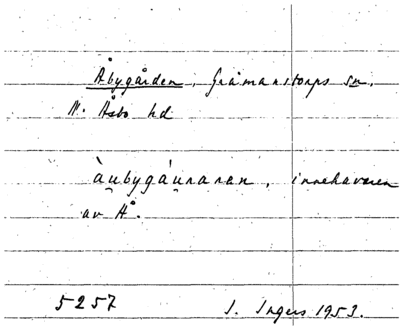 Åbygården, Gråmanstorps sn.
N. Åsbo hd
àu̯bygáu̯ɹaɹen, innehavaren
av Å.
5257 I. Ingers 1953.